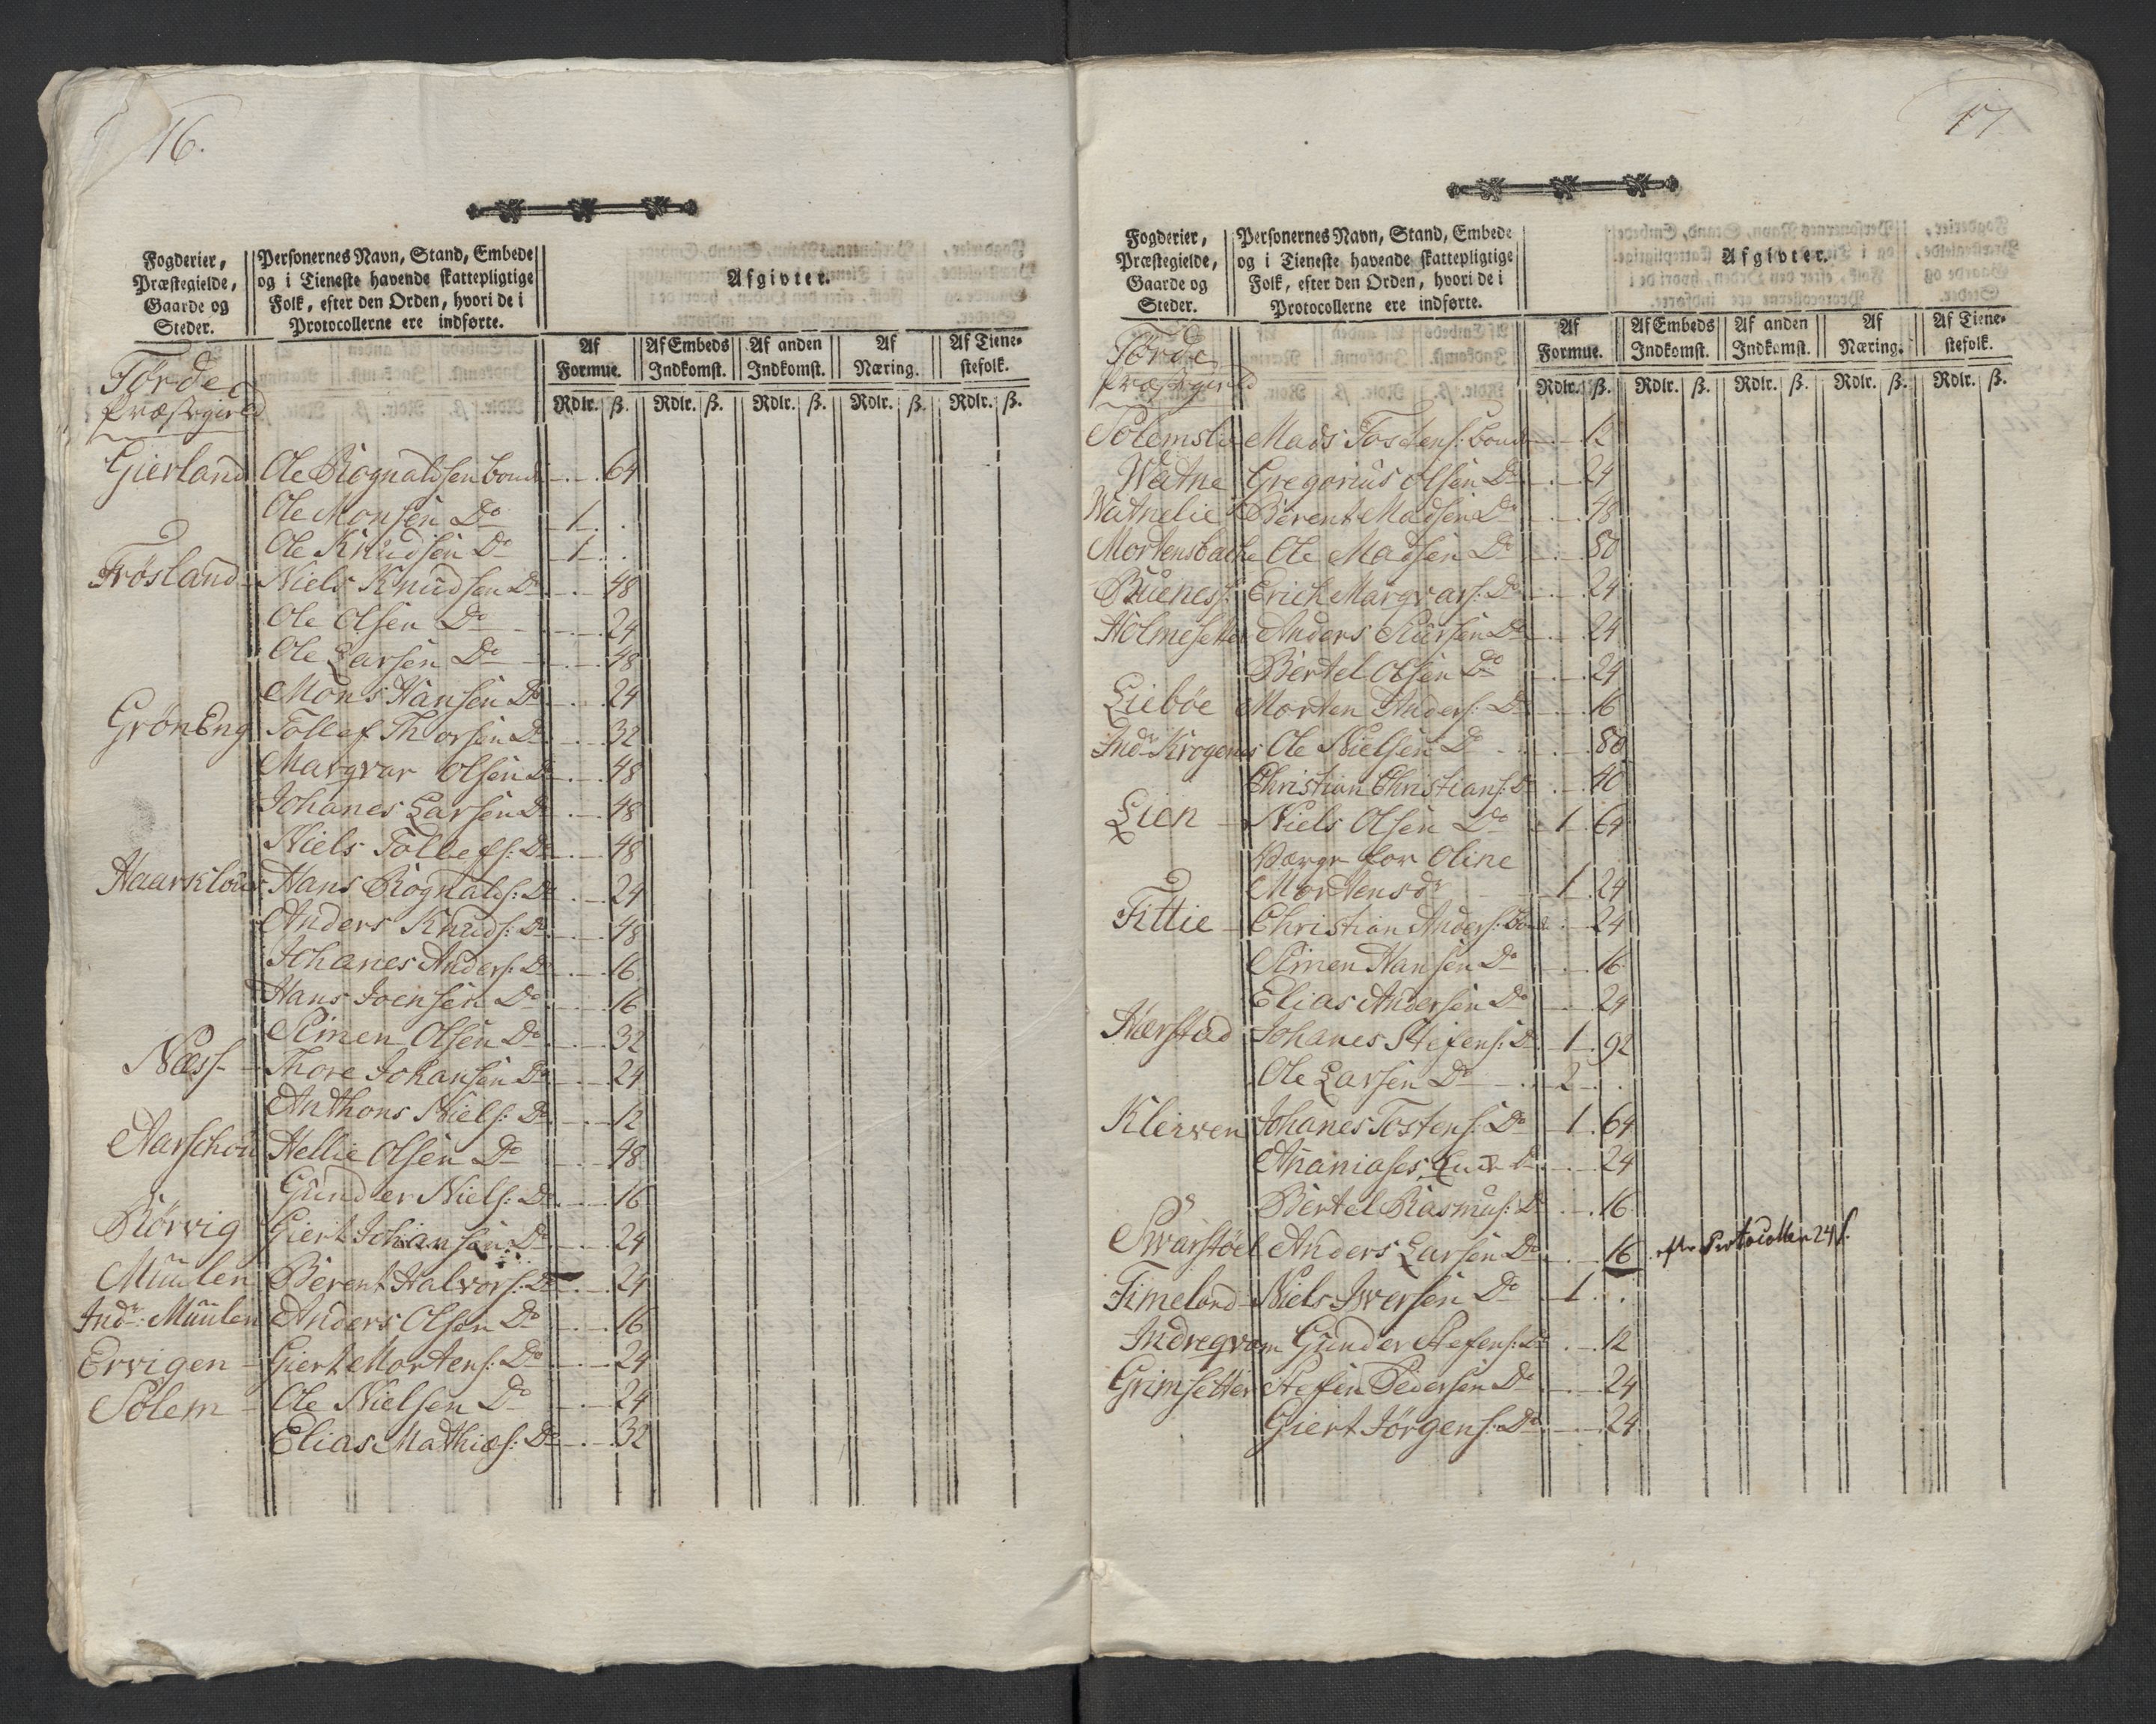 16.
Fogderier, Præstegielde, Gaarde og Steder.
Personernes Navn, Stand, Embede og i Tieneste havende skattepligtige Folk, efter den Orden, hvori de i Protocollerne ere indførte.
Afgivter.
Af Formue. Af Embeds Indkomst. Af anden Indkomst. Af Næring. Af Tienestefolk.
Rdlr. ß. Rdlr. ß. Rdlr. ß. Rdlr. ß. Rdlr. ß.
Førde
Præstegield
Gierland Ole Rognaldsen bonde 64
Ole Monsen Do 1
Ole Knudsen Do 1
Frøsland Niels Knudsen Do 48
Ole Olsen Do 24
Ole Larsen Do 48
Mons Hansen Do 24
Grøneng Tollef Thorsen Do 32
Margvar Olsen Do 48
Johanes Larsen Do 48
Niels Tollefs: Do 48
Hans Rognalds: Do 24
Anders Knuds: Do 48
Johanes Anders: Do 16
Hans Joensen Do 16
Simen Olsen Do 32
Næss Thore Johansen Do 24
Anthons Niels: Do 12
Hellie Olsen Do 48
Gunder Niels: Do 16
Rørvig Giert Johansen Do 24
Muulen Berent Halvors: Do 24
Indr: Muulen Anders Olsen Do 16
Ervigen Giert Mortens: Do 24
Solem Ole Nielsen Do 24
Elias Mathias: Do 32
17
Fogderier, Præstegielde, Gaarde og Steder.
Personernes Navn, Stand, Embede og i Tieneste havende skattepligtige Folk, efter den Orden, hvori de i Protocollerne ere indførte.
Afgivter.
Af Formue. Af Embeds Indkomst. Af anden Indkomst. Af Næring. Af Tienestefolk.
Rdlr. ß. Rdlr. ß. Rdlr. ß. Rdlr. ß. Rdlr. ß.
Førde
Præstegield
Solemslie Mads Tostens: bonde 12
Watne Gregorius Olsen Do 24
Watnelie Berent Madsen Do 48
Mortensbache Ole Madsen Do 80
Buenes: Erich Margvars: Do 24
Holmesetter Anders Do 24
Bertel Olsen Do 24
Liebøe Morten Anders: Do 16
Indr Krogenes Ole Nielsen Do 80
Christian Christians: Do 40
Lien Niels Olsen Do 1 64
Værge for Oline
Mortensdr 1 24
Fittie Christian Anders: bonde 24
Simen Hansen Do 16
Elias Andersen Do 24
Hærstad Johanes Stefens: Do 1 92
Ole Larsen Do 2
Klerven Johanes Tostens: Do 1 64
Do 24
Bertel Rasmus: Do 16
Swarstøel Anders Larsen Do 16 efter Protocollen 24 ß.
Fimeland Niels Iversen Do 1
Indreqvam Gunder Stefens: Do 12
Grimsetter Steffen Pedersen Do 24
Giert Jørgens: Do 24